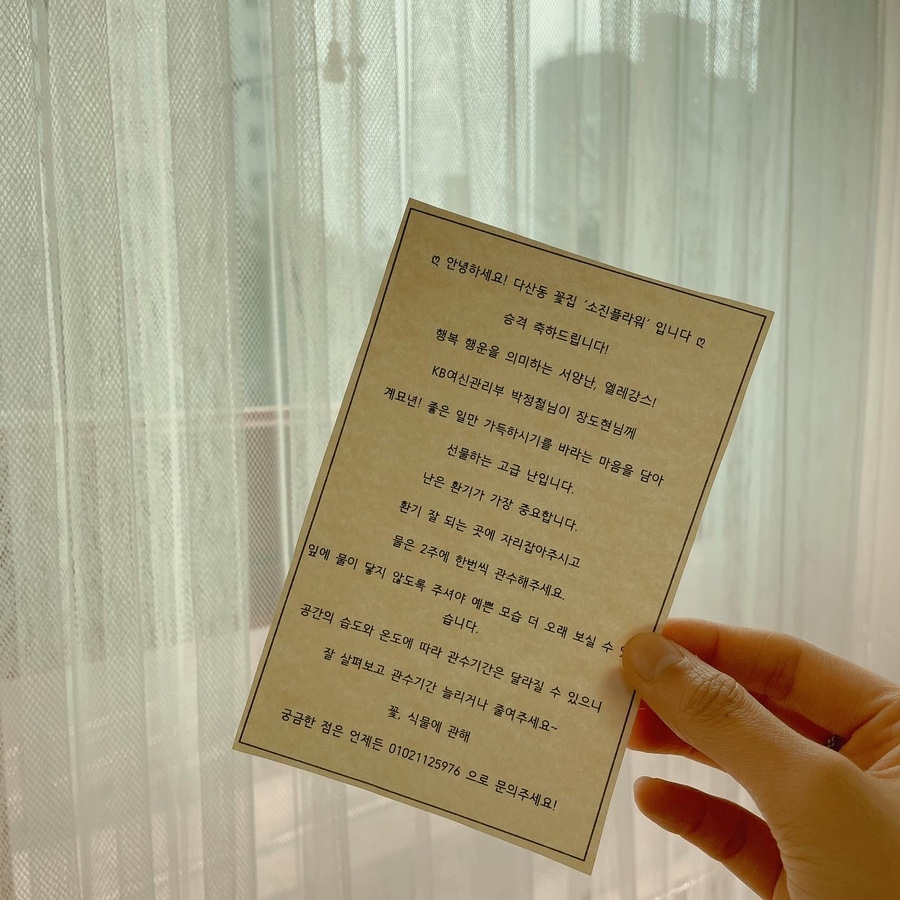 ღ 안녕하세요! 다산동 꽃집 '소진플라워' 입니다 ღ
승격 축하드립니다!
행복 행운을 의미하는 서양난, 엘레강스!
KB여신관리부 박정철님이 장도현님께
계묘년! 좋은 일만 가득하시기를 바라는 마음을 담아
선물하는 고급 난입니다.
난은 환기가 가장 중요합니다.
환기 잘 되는 곳에 자리잡아주시고
물은 2주에 한번씩 관수해주세요.
잎에 물이 닿지 않도록 주셔야 예쁜 모습 더 오래 보실 수
습니다.
공간의 습도와 온도에 따라 관수기간은 달라질 수 있으니
잘 살펴보고 관수기간 늘리거나 줄여주세요~
꽃, 식물에 관해
궁금한 점은 언제든 01021125976 으로 문의주세요!